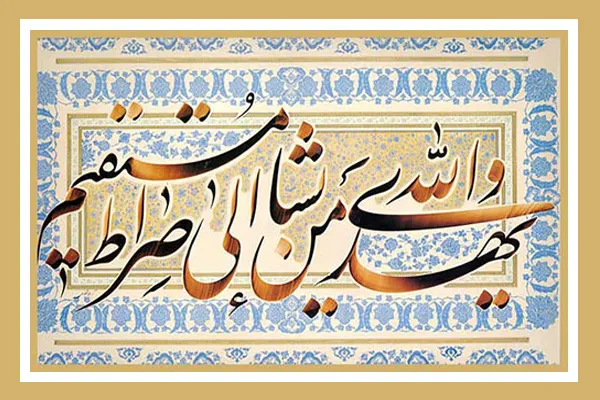 والله یهدی من یشا إلی صراط مستقیم